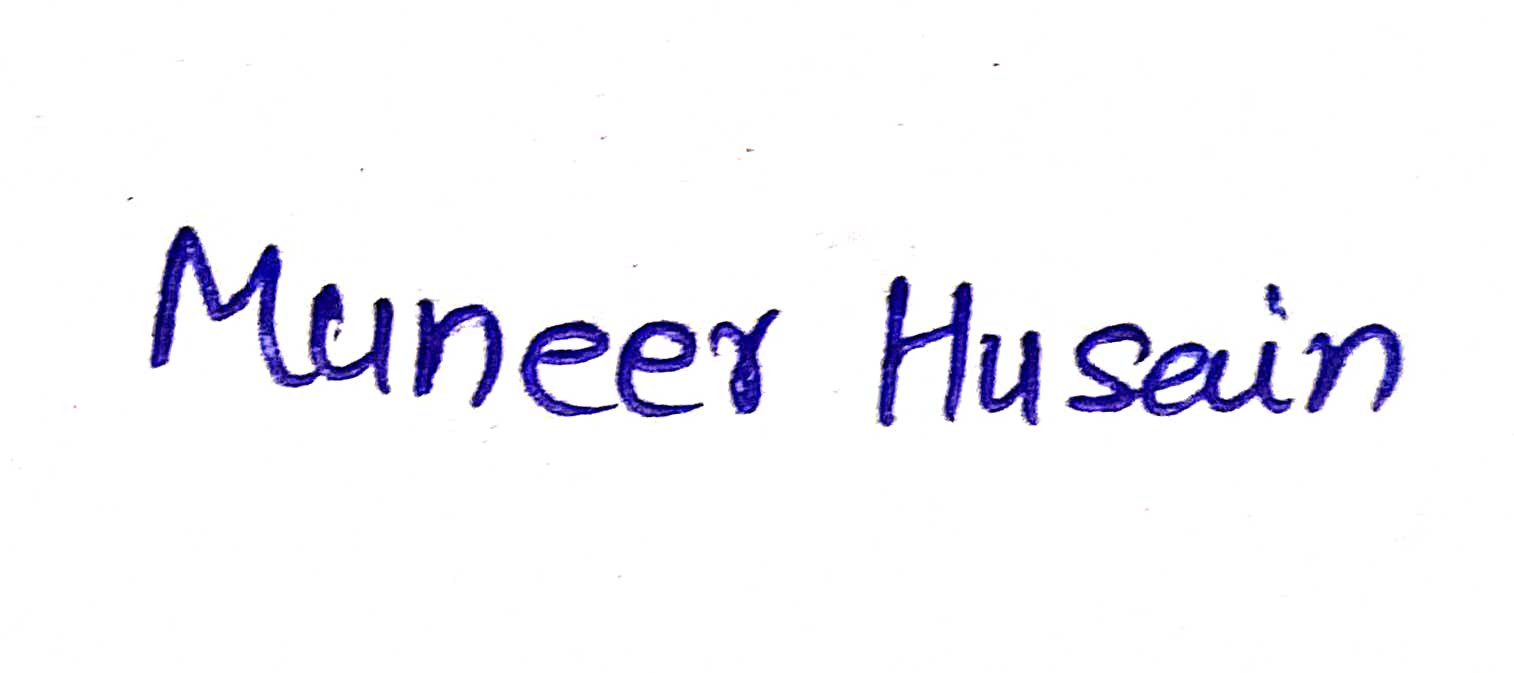 Muneer Husain